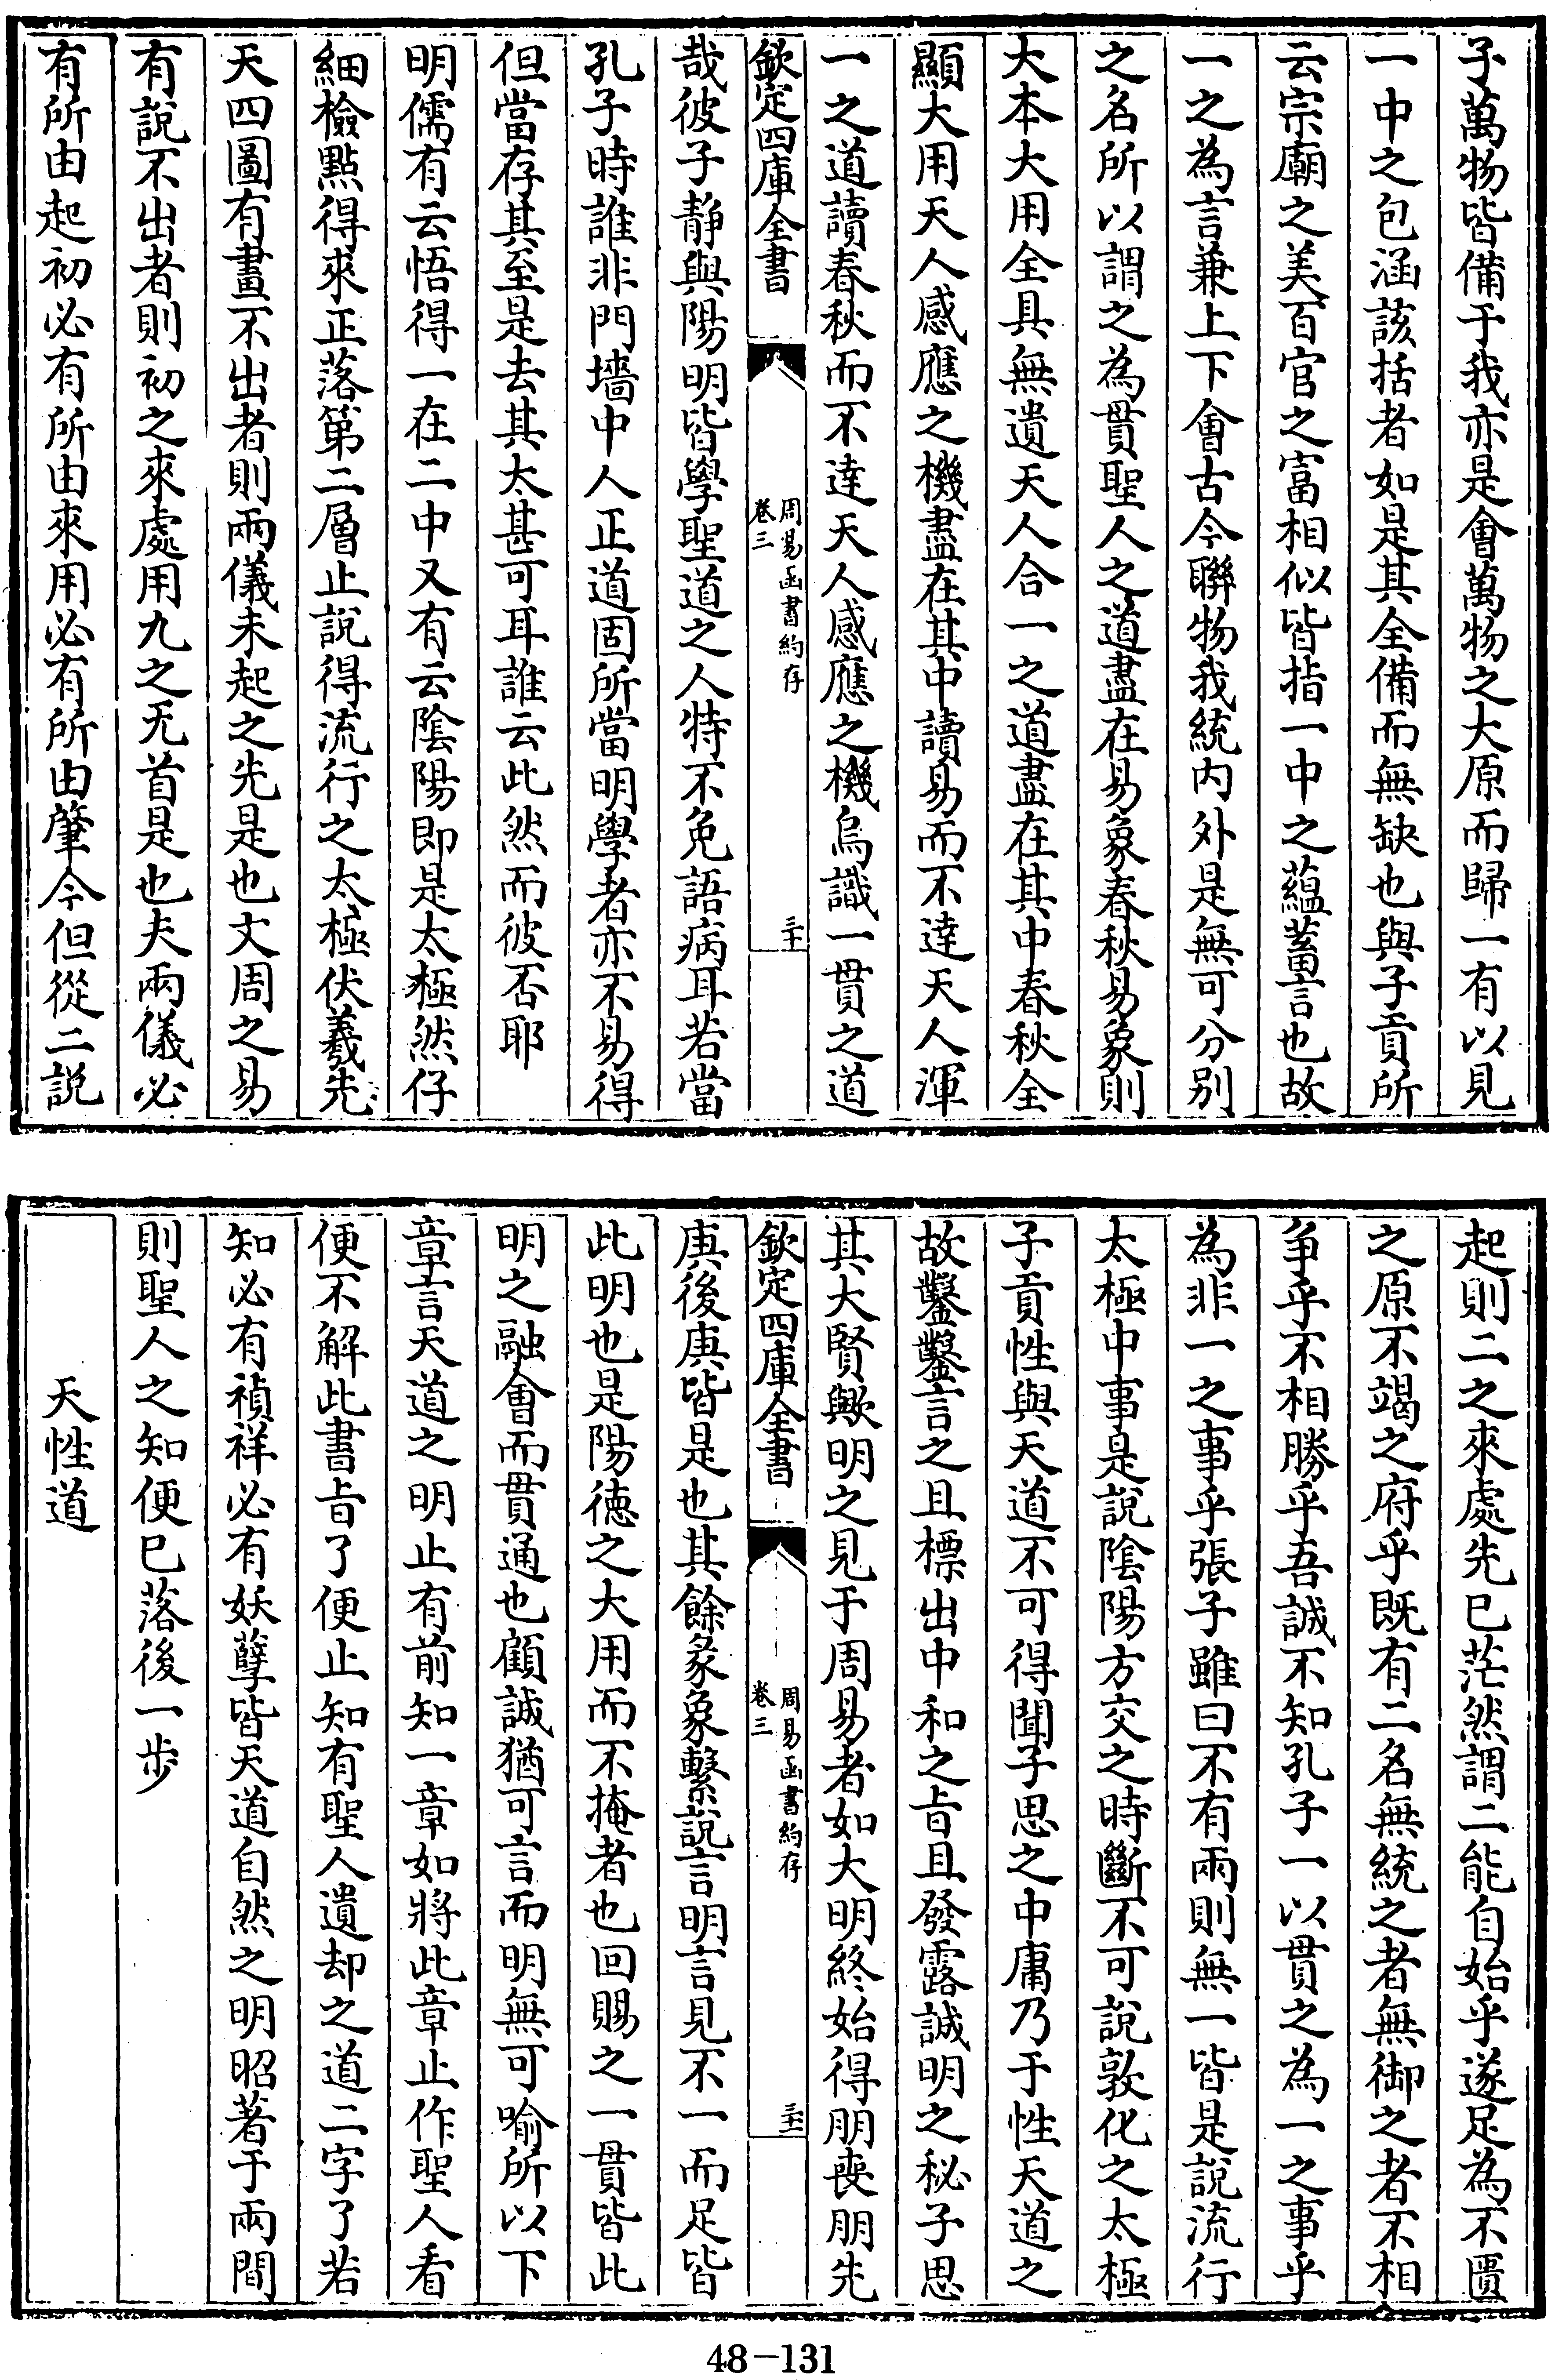 子萬物皆備于我亦是會萬物之大原而歸一有以見
一中之包涵該括者如是其全備而無缺也與子貢所
云宗廟之美百官之富相似皆指一中之蘊蓄言也故
一之為言兼上下會古今聯物我統內外是無可分别
之名所以謂之為貫聖人之道盡在易象春秋易象則
大本大用全具無遺天人合一之道盡在其中春秋全
顯大用天人感應之機盡在其中讀易而不達天人渾
一之道讀春秋而不達天人感應之機烏識一貫之道
欽定四庫全書
周易函書約存
卷三
三十
哉彼子静與陽明皆學聖道之人特不免語病耳若當
孔子時誰非門墻中人正道固所當明學者亦不易得
但當存其至是去其太甚可耳誰云此然而彼否耶
明儒有云悟得一在二中又有云陰陽即是太極然仔
細檢點得來正落第二層止說得流行之太極伏羲先
天四圖有畫不出者則兩儀未起之先是也文周之易
有說不出者則初之來處用九之无首是也夫兩儀必
有所由起初必有所由來用必有所由肇今但從二說
起則二之來處先已茫然謂二能自始乎遂足為不匱
之原不竭之府乎既有二名無統之者無御之者不相
争乎不相勝乎吾誠不知孔子一以貫之為一之事乎
為非一之事乎張子雖曰不有兩則無一皆是說流行
太極中事是說陰陽方交之時斷不可說敦化之太極
子貢性與天道不可得聞子思之中庸乃于性天道之
故鑿鑿言之且標出中和之旨且發露誠明之秘子思
其大賢歟明之見于周易者如大明終始得朋喪朋先
欽定四庫全書
周易函書約存
卷三
三十一
庚後庚皆是也其餘彖象繫說言明言見不一而足皆
此明也是陽德之大用而不掩者也回賜之一貫皆此
明之融會而貫通也顧誠猶可言而明無可喻所以下
章言天道之明止有前知一章如將此章止作聖人看
便不解此書旨了便止知有聖人遺却之道二字了若
知必有禎祥必有妖孽皆天道自然之明昭著于兩間
則聖人之知便已落後一步
天性道
48-131